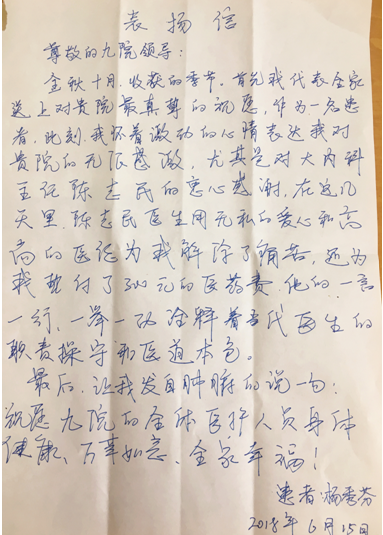 表扬信
尊敬的九院领导：
金秋十月，收获的季节。首先我代表全家
送上对贵院最真挚的祝愿，作为一名患
者，此刻，我怀着激动的心情表达我对
贵院的无限感激，尤其是对大内科
主任陈志民的衷心感谢，在这几
天里，陈志民医生用无私的爱心和高
尚的医德为我解除了病苦，还为
我垫付了元的医药费，他的一言
一行，一举一动诠释着当代医生的
职责操守和医道本色。
最后，让我发自肺腑的说一句：
祝愿九院的全体医护人员身体
健康、万事如意、全家幸福！
患者：杨秀芬
2018年6月15日